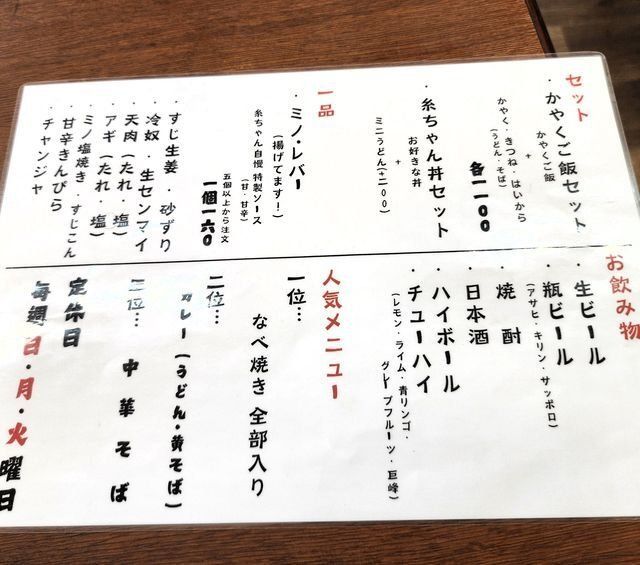 セット
・かやくご飯セット
かやくご飯
+
かやく・きつね・はいから
(うどん・そば)
各一一00
・糸ちゃん丼セット
お好きな丼
+
ミニうどん(+二00)
一品
・ミノ・レバー
(揚げてます!)
糸ちゃん自慢 特製ソース
(甘・甘辛)
五個以上から注文
一個一六0
・すじ生姜・砂ずり
・冷奴・生センマイ
・天肉(たれ・塩)
・アギ(たれ・塩)
・ミノ塩焼き・すじこん
・甘辛きんぴら
・チャンジャ
お飲み物
・生ビール
・瓶ビール
(アサヒ・キリン・サッポロ)
・焼酎
・日本酒
・ハイボール
・チューハイ
(レモン・ライム・青リンゴ・
グレープフルーツ・巨峰)
人気メニュー
一位…
なべ焼き 全部入り
二位…
カレー(うどん・黄そば)
三位… 中華そば
定休日
毎週日・月・火曜日